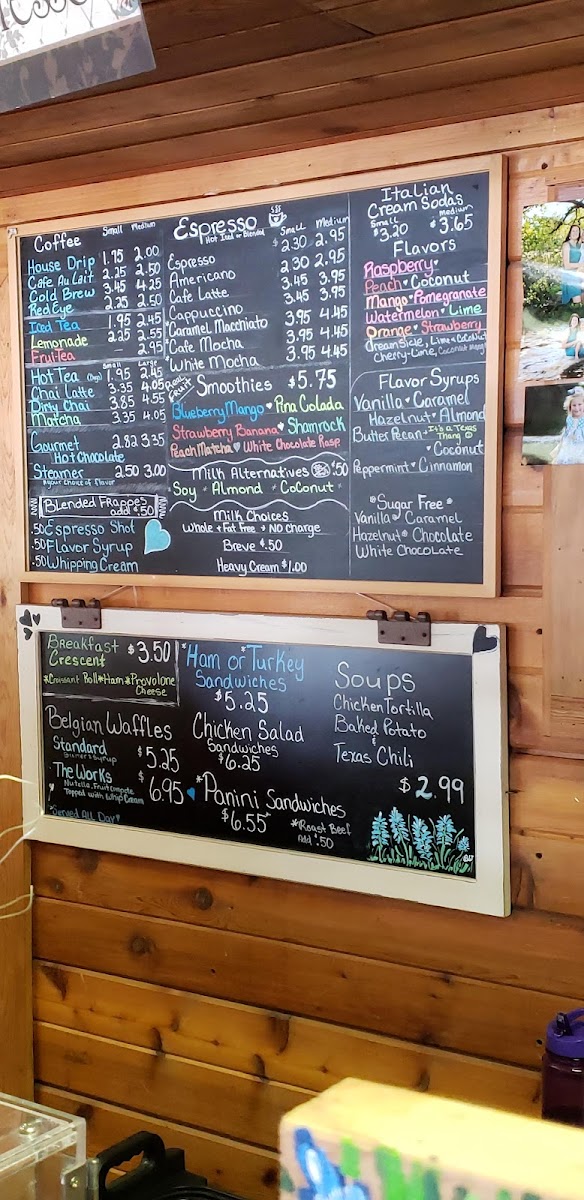 Coffee Small Medium
House Drip 1.75 2.00
Cafe Au Lait 2.25 2.50
Cold Brew 3.45 4.25
Red Eye 2.25 2.50
Iced Tea 1.95 2.45
Lemonade 2.25 2.55
Fruitea — 2.95
Small Large
Hot Tea 1.95 2.45
Chai Latte 3.35 4.05
Dirty Chai 3.85 4.55
Matcha 3.35 4.05
Gourmet 2.82 3.35
Hot Chocolate
Steamer 2.50 3.00
*your choice of flavor
Blended Frappes
add $.50
.50 Espresso Shot
.50 Flavor Syrup
.50 Whipping Cream
Espresso
Hot Iced or Blended
Small Medium
Espresso $2.30 2.95
Americano 2.30 2.95
Cafe Latte 3.45 3.95
Cappuccino 3.45 3.95
*Caramel Macchiato 3.95 4.45
*Cafe Mocha 3.95 4.45
*White Mocha 3.95 4.45
Real Fruit
Smoothies $5.75
Blueberry Mango • Pina Colada
Strawberry Banana • Shamrock
Peach Matcha • White Chocolate Rasp.
Milk Alternatives $.50
Soy • Almond • Coconut
Milk Choices
Whole + Fat Free • NO Charge
Breve $.50
Heavy Cream $1.00
Italian
Cream Sodas
Small Medium
$3.20 $3.65
Flavors
Raspberry
Peach • Coconut
Mango • Pomegranate
Watermelon • Lime
Orange • Strawberry
dreamsicle, Lime & Coconut
Cherry-Lime, Coconut Mango
Flavor Syrups
Vanilla • Caramel
Hazelnut • Almond
Butter Pecan • It's a Texas Thang
• Coconut
Peppermint • Cinnamon
*Sugar Free*
Vanilla • Caramel
Hazelnut • Chocolate
White Chocolate
Breakfast $3.50
Crescent
*Croissant Roll*Ham*Provolone
Cheese
Belgian Waffles
Standard $5.25
The Works $6.95
Topped with Whip Cream
*Served All Day
*Ham or *Turkey
Sandwiches
$5.25
Chicken Salad
Sandwiches
$6.25
*Panini Sandwiches
$6.55
*Roast Beef
add $.50
Soups
Chicken Tortilla
Baked Potato
&
Texas Chili
$2.99